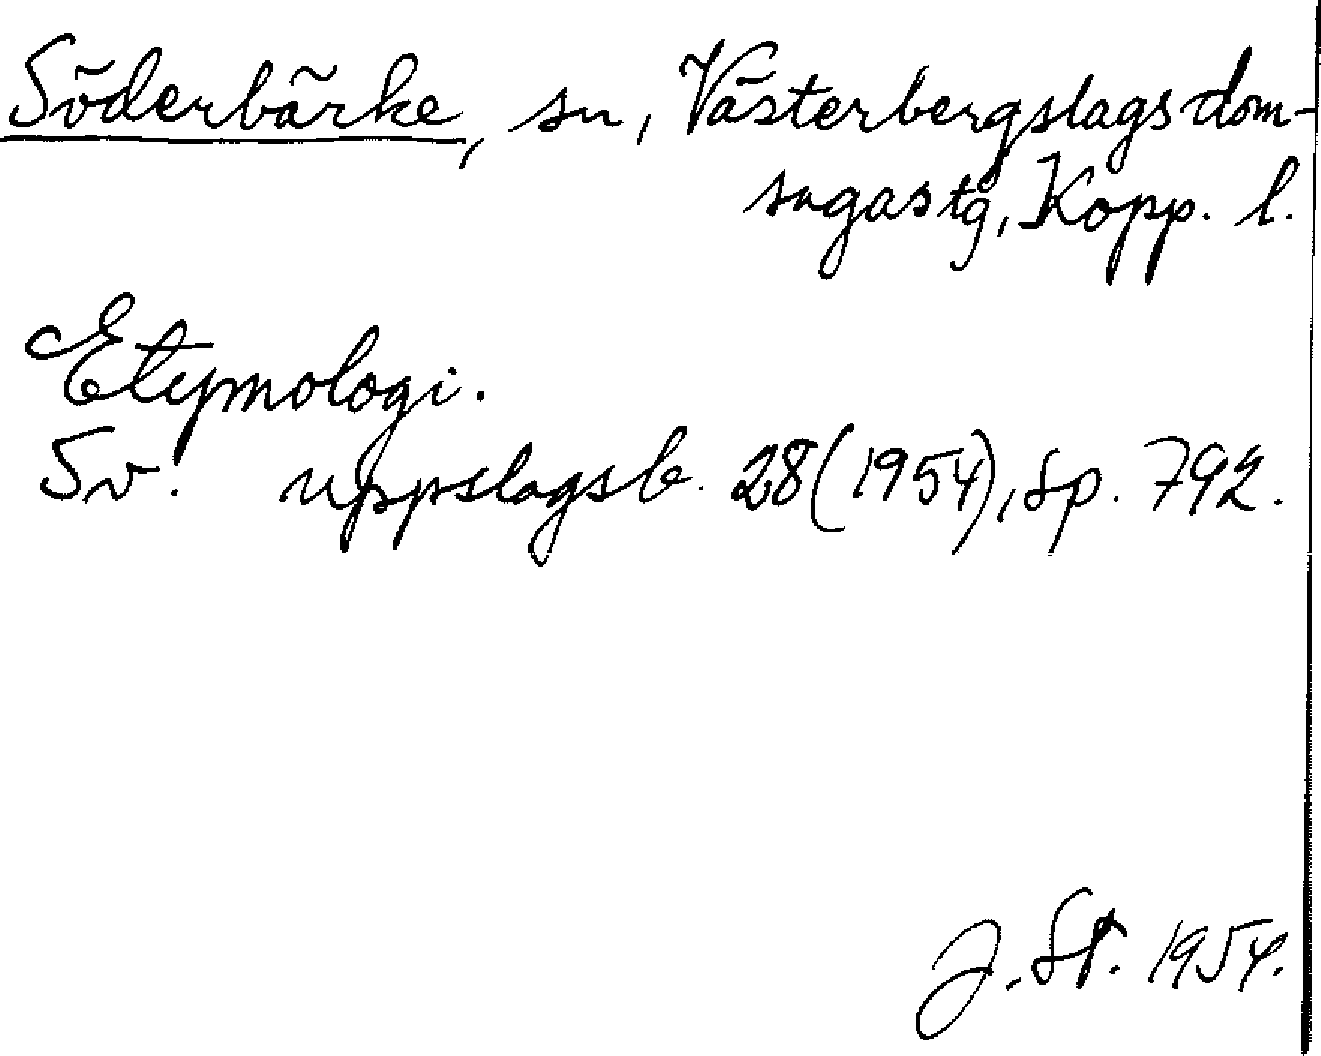 Söderbärke, sn, Västerbergslags dom-
sagastg, Kopp. l.
Etymologi.
Sv. uppslagsb. 28 (1954), sp. 792.
J. St. 1954.